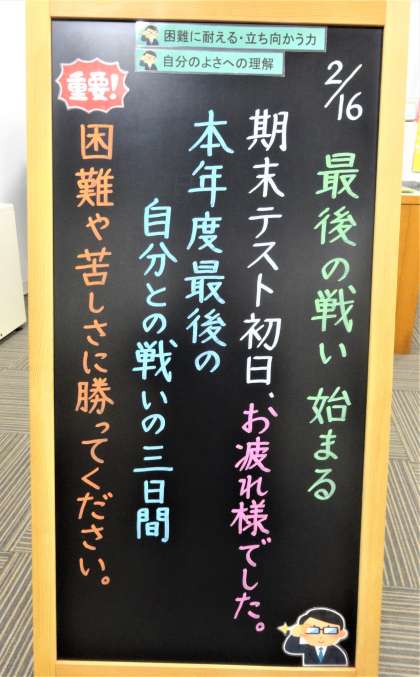 困難に耐える・立ち向かう力
自分のよさへの理解
2/16
最後の戦い 始まる
期末テスト初日、お疲れ様でした。
本年度最後の
自分との戦いの三日間
重要!
困難や苦しさに勝ってください。